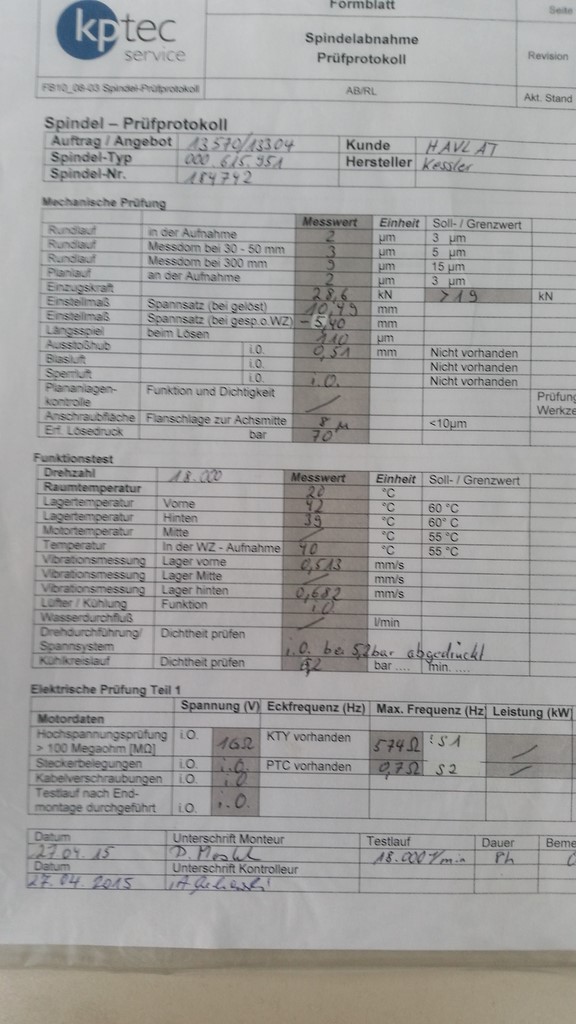 Formblatt
Seite
kptec
service
Spindelabnahme
Prüfprotokoll
Revision
FB10_08-03 Spindel-Prüfprotokoll
AB/RL
Akt. Stand
Spindel – Prüfprotokoll
Auftrag / Angebot 13570/13304 Kunde HAVLAT
Spindel-Typ 000.615.951 Hersteller Kessler
Spindel-Nr. 184742
Mechanische Prüfung
Messwert Einheit Soll- / Grenzwert
Rundlauf in der Aufnahme 2 µm 3 µm
Rundlauf Messdorn bei 30 - 50 mm 3 µm 5 µm
Rundlauf Messdorn bei 300 mm 9 µm 15 µm
Planlauf an der Aufnahme 2 µm 3 µm
Einzugskraft 28,6 kN >19 kN
Einstellmaß Spannsatz (bei gelöst) 10,49 mm
Einstellmaß Spannsatz (bei gesp.o.WZ) - 5,40 mm
Längsspiel beim Lösen 110 µm
Ausstoßhub i.O. 0,51 mm Nicht vorhanden
Blasluft i.O. Nicht vorhanden
Sperrluft i.O. i.O. Nicht vorhanden
Plananlagen-
kontrolle Funktion und Dichtigkeit Prüfung
Werkze
Anschraubfläche Flanschlage zur Achsmitte 8 µ <10µm
Erf. Lösedruck bar 70
Funktionstest
Drehzahl 18.000 Messwert Einheit Soll- / Grenzwert
Raumtemperatur 20 °C
Lagertemperatur Vorne 42 °C 60 °C
Lagertemperatur Hinten 39 °C 60° C
Motortemperatur Mitte °C 55 °C
Temperatur In der WZ - Aufnahme 40 °C 55 °C
Vibrationsmessung Lager vorne 0,513 mm/s
Vibrationsmessung Lager Mitte mm/s
Vibrationsmessung Lager hinten 0,682 mm/s
Lüfter / Kühlung Funktion i.O
Wasserdurchfluß l/min
Drehdurchführung/
Spannsystem Dichtheit prüfen i.O. bei 5,2bar abgedrückt
Kühlkreislauf Dichtheit prüfen 5,2 bar .... min. ....
Elektrische Prüfung Teil 1
Spannung (V) Eckfrequenz (Hz) Max. Frequenz (Hz) Leistung (kW)
Motordaten
Hochspannungsprüfung
> 100 Megaohm [MΩ] i.O. 1GΩ KTY vorhanden 574Ω : S1
Steckerbelegungen i.O. i.O. PTC vorhanden 0,7Ω S2
Kabelverschraubungen i.O. i.O
Testlauf nach End-
montage durchgeführt i.O. i.O.
Datum Unterschrift Monteur Testlauf Dauer Beme
27.04.15 18.000 1/min 8h
Datum Unterschrift Kontrolleur
27.04.2015